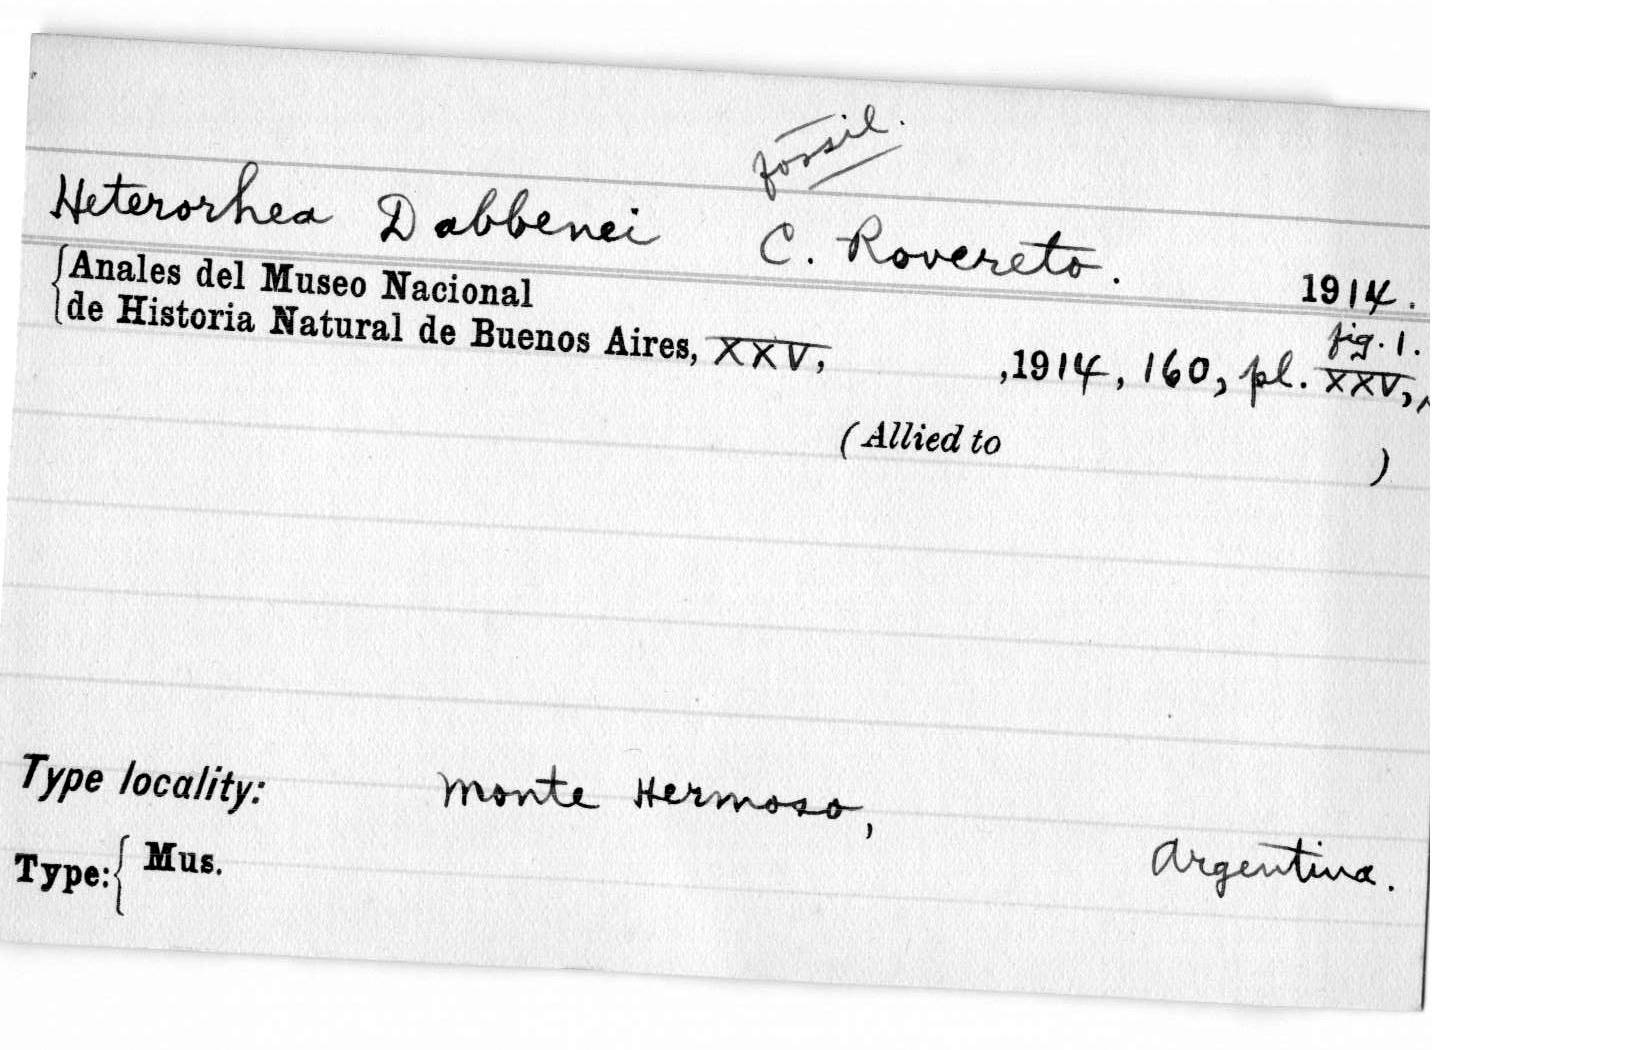 fossil.
Heterorhea Dabbenei C. Rovereto. 1914.
Anales del Museo Nacional
de Historia Natural de Buenos Aires, XXV, ,1914, 160, pl. XXV,
fig. 1.
(Allied to )
Type locality: Monte Hermoso,
Argentina.
Type: Mus.